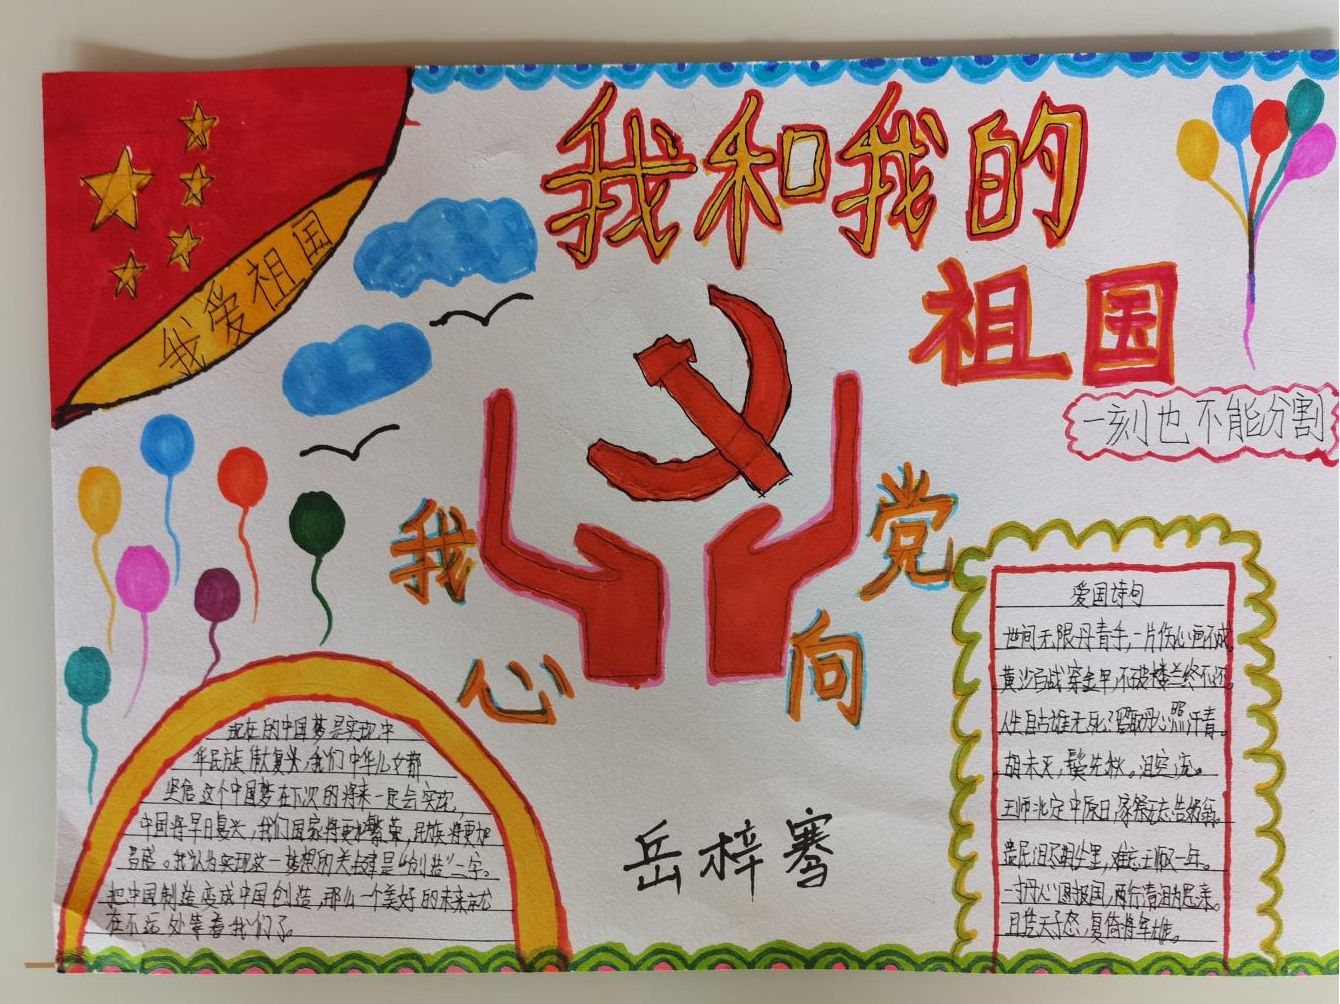 我爱祖国
我和我的
祖国
一刻也不能分割
我心向党
现在的中国梦是实现中
华民族伟大复兴,我们中华儿女都
坚信这个中国梦在不久的将来一定会实现,
中国将早日复兴,我们国家将更加繁荣,民族将更加
昌盛。我认为实现这一梦想的关键是“创造”二字。
把中国制造变成中国创造,那么一个美好的未来就
在不远处等着我们了。
岳梓骞
爱国诗句
世间无限丹青手,一片伤心画不成
黄沙百战穿金甲,不破楼兰终不还
人生自古谁无死?留取丹心照汗青。
胡未灭,鬓先秋。泪空流。
王师北定中原日,家祭无忘告乃翁。
遗民泪尽胡尘里,南望王师又一年。
一寸丹心图报国,两行清泪为思亲。
且凭天子怒,复倚将军雄。